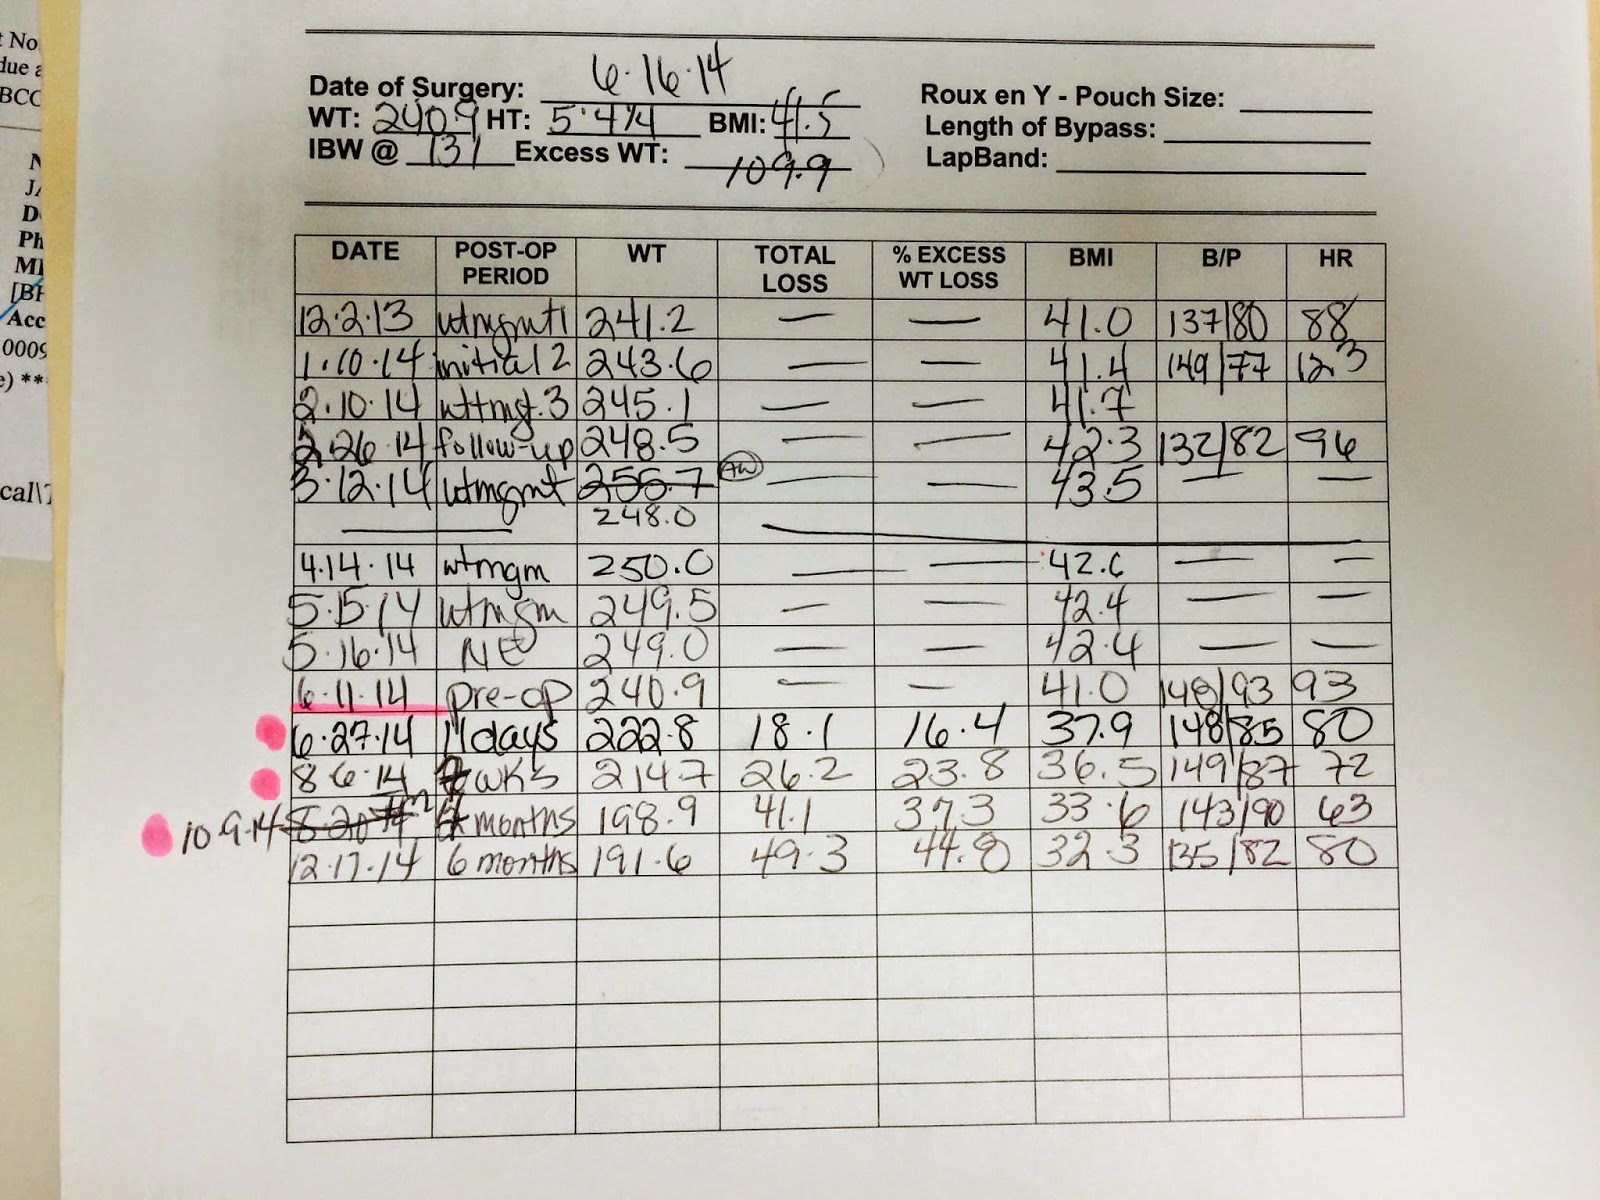 t No
due a
BCC
N
JA
D
Ph
MI
[BH
Acc
0009
e) **
cal\
Date of Surgery: 6·16·14
WT: 240.9 HT: 5'4¼ BMI: 41.5
IBW @ 131 Excess WT: 109.9
Roux en Y - Pouch Size:
Length of Bypass:
LapBand:
DATE POST-OP PERIOD WT TOTAL LOSS % EXCESS WT LOSS BMI B/P HR
12·2·13 wtmgmt1 241.2 — — 41.0 137/80 88
1·10·14 initial 2 243.6 — — 41.4 149/77 123
2·10·14 wtmgt.3 245.1 — — 41.7
2·26·14 follow-up 248.5 — — 42.3 132/82 96
3·12·14 wtmgmt 255.7 AW — — 43.5 — —
— 248.0 —
4·14·14 wtmgm 250.0 — — 42.6 — —
5·15·14 wtmgm 249.5 — — 42.4 — —
5·16·14 NE 249.0 — — 42.4 — —
6·11·14 pre-op 240.9 — — 41.0 148/93 93
6·27·14 11days 222.8 18.1 16.4 37.9 148/85 80
8·6·14 7 wks 214.7 26.2 23.8 36.5 149/87 72
10·9·14 8·20·14 4 months 198.9 41.1 37.3 33.6 143/90 63
12·17·14 6 months 191.6 49.3 44.8 32.3 135/82 80